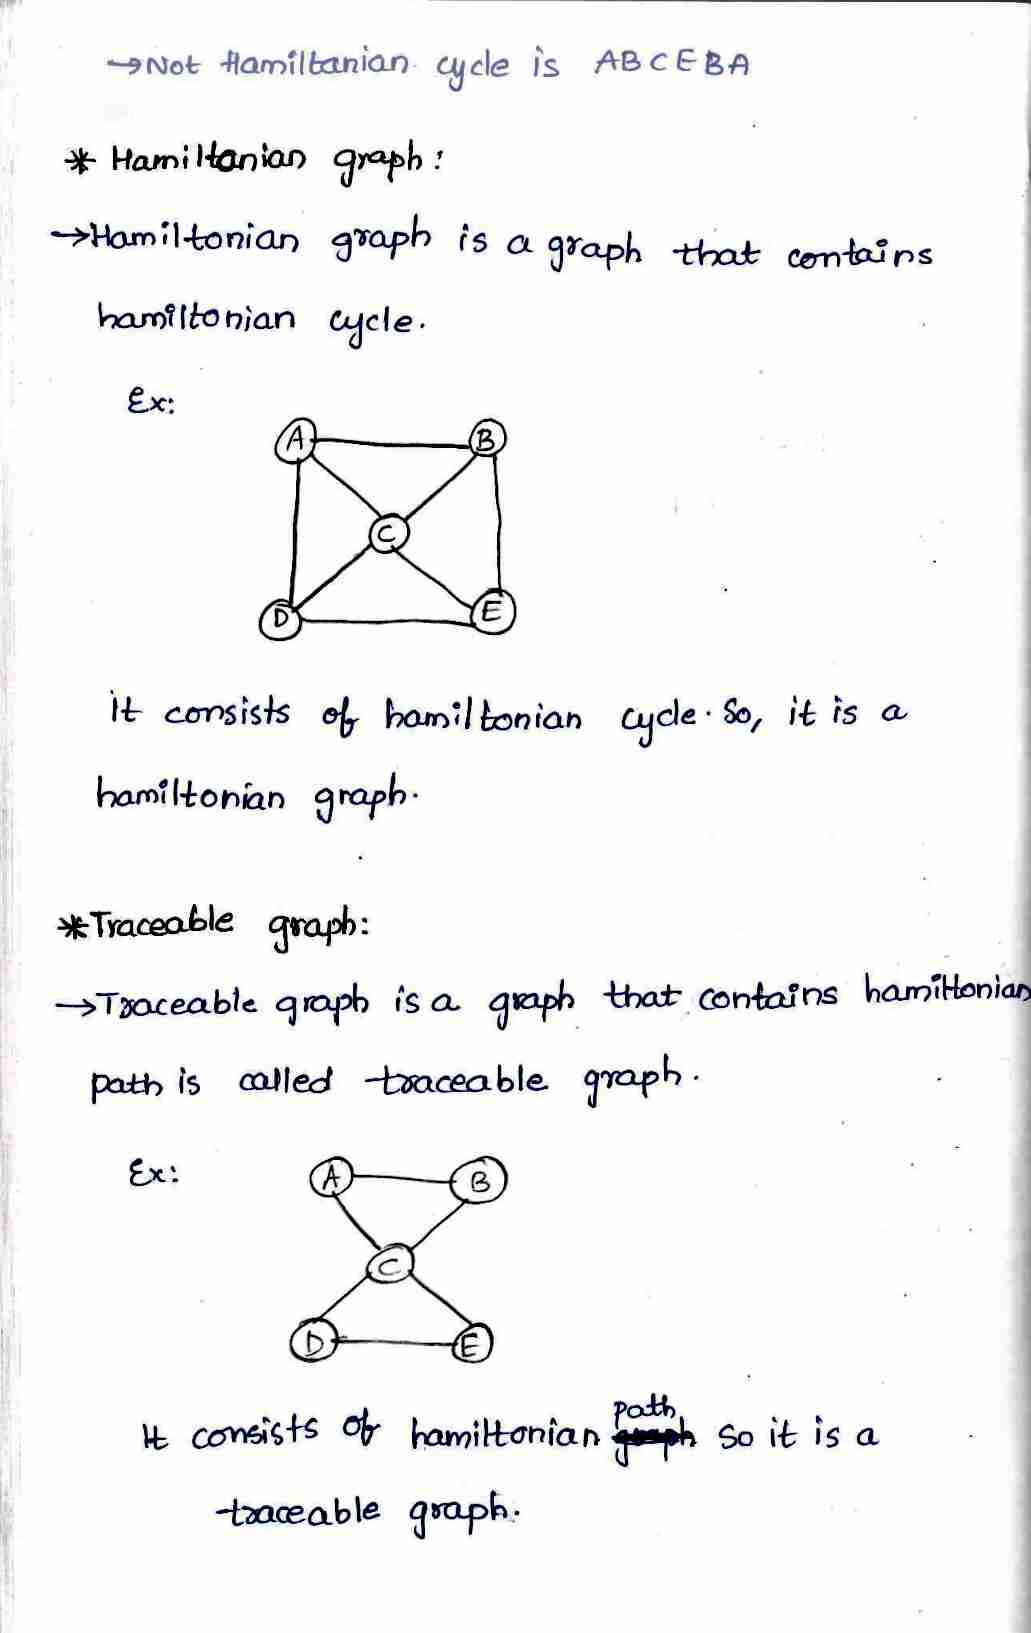 →Not Hamiltanian cycle is ABCEBA
* Hamiltanian graph:
→Hamiltonian graph is a graph that contains
hamiltonian cycle.
Ex:
A B
C
D E
it consists of hamiltonian cycle. So, it is a
hamiltonian graph.
*Traceable graph:
→Traceable graph is a graph that contains hamiltonian
path is called traceable graph.
Ex:
A B
C
D E
path
It consists of hamiltonian graph so it is a
traceable graph.